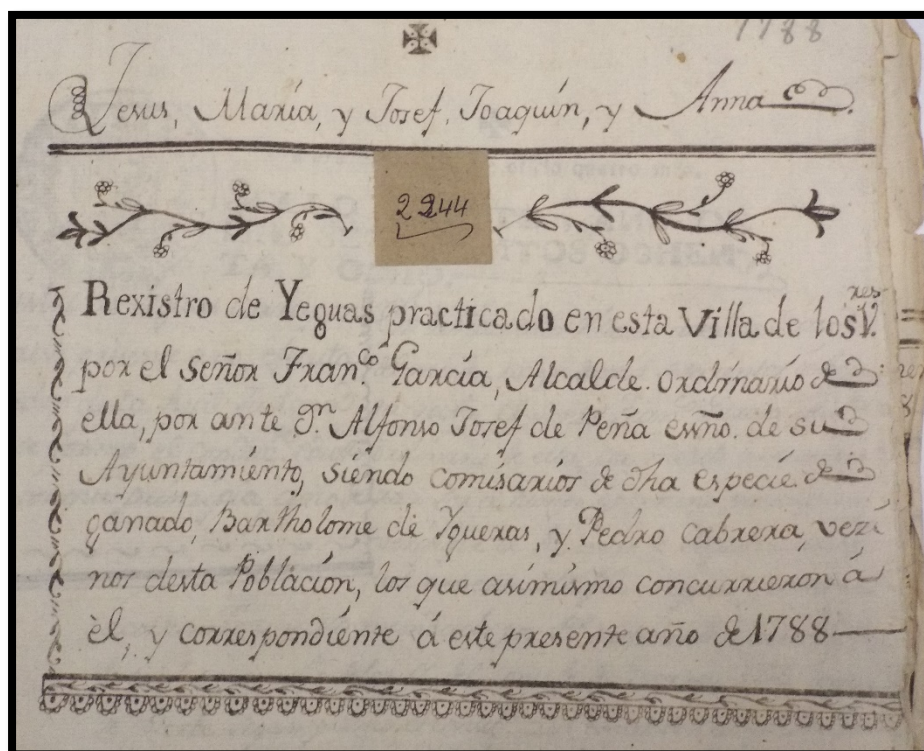 1788
Jesus, María, y Josef, Joaquín, y Anna
2244
Rexistro de Yeguas practicado en esta Villa de los V.res
por el Señor Fran.co García, Alcalde Ordinario de
ella, por ante Dn. Alfonso Josef de Peña esno. de su
Ayuntamiento, siendo comisarios de dha especie de
ganado, Bartholome de Yqueras, y Pedro Cabrera, vezi
nos desta Población, los que asimismo concurrieron á
èl, y correspondiente á este presente año de 1788